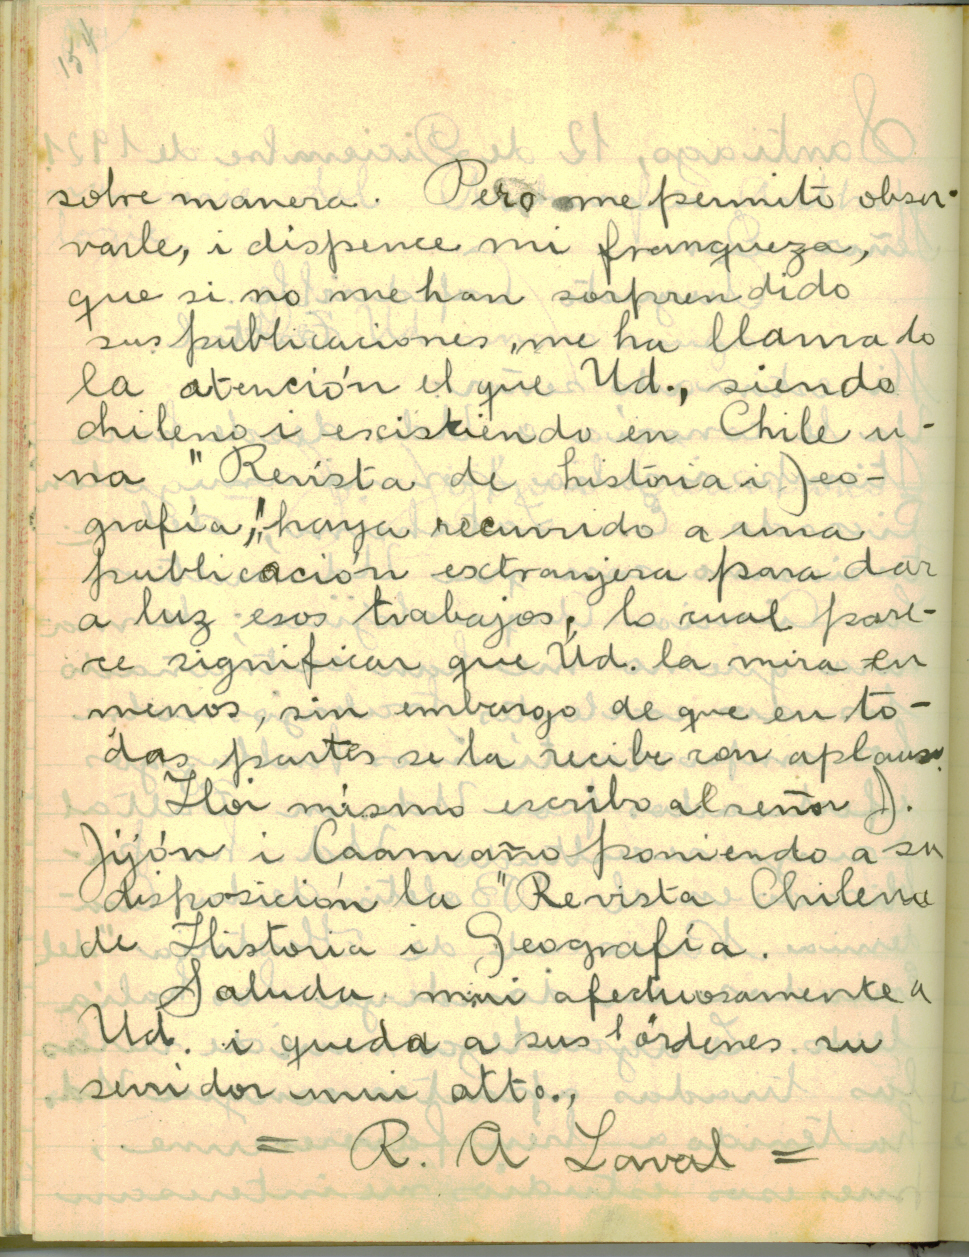 154
sobre manera. Pero me permito obser-
varle, i dispence mi franqueza,
que si no me han sorprendido
sus publicaciones, me ha llamado
la atención el que Ud., siendo
chileno i escistiendo en Chile u-
na "Revista de historia i Jeo-
grafía," haya recurrido a una
publicación extranjera para dar
a luz esos trabajos, lo cual pare-
ce significar que Ud. la mira en
menos, sin embargo de que en to-
das partes se la recibe con aplauso.
Hoi mismo escribo al señor J.
Jijón i Caamaño poniendo a su
disposición la "Revista Chilena
de Historia i Geografía.
Saluda mui afectuosamente a
Ud. i queda a sus órdenes su
servidor mui atto.,
= R. A Laval =